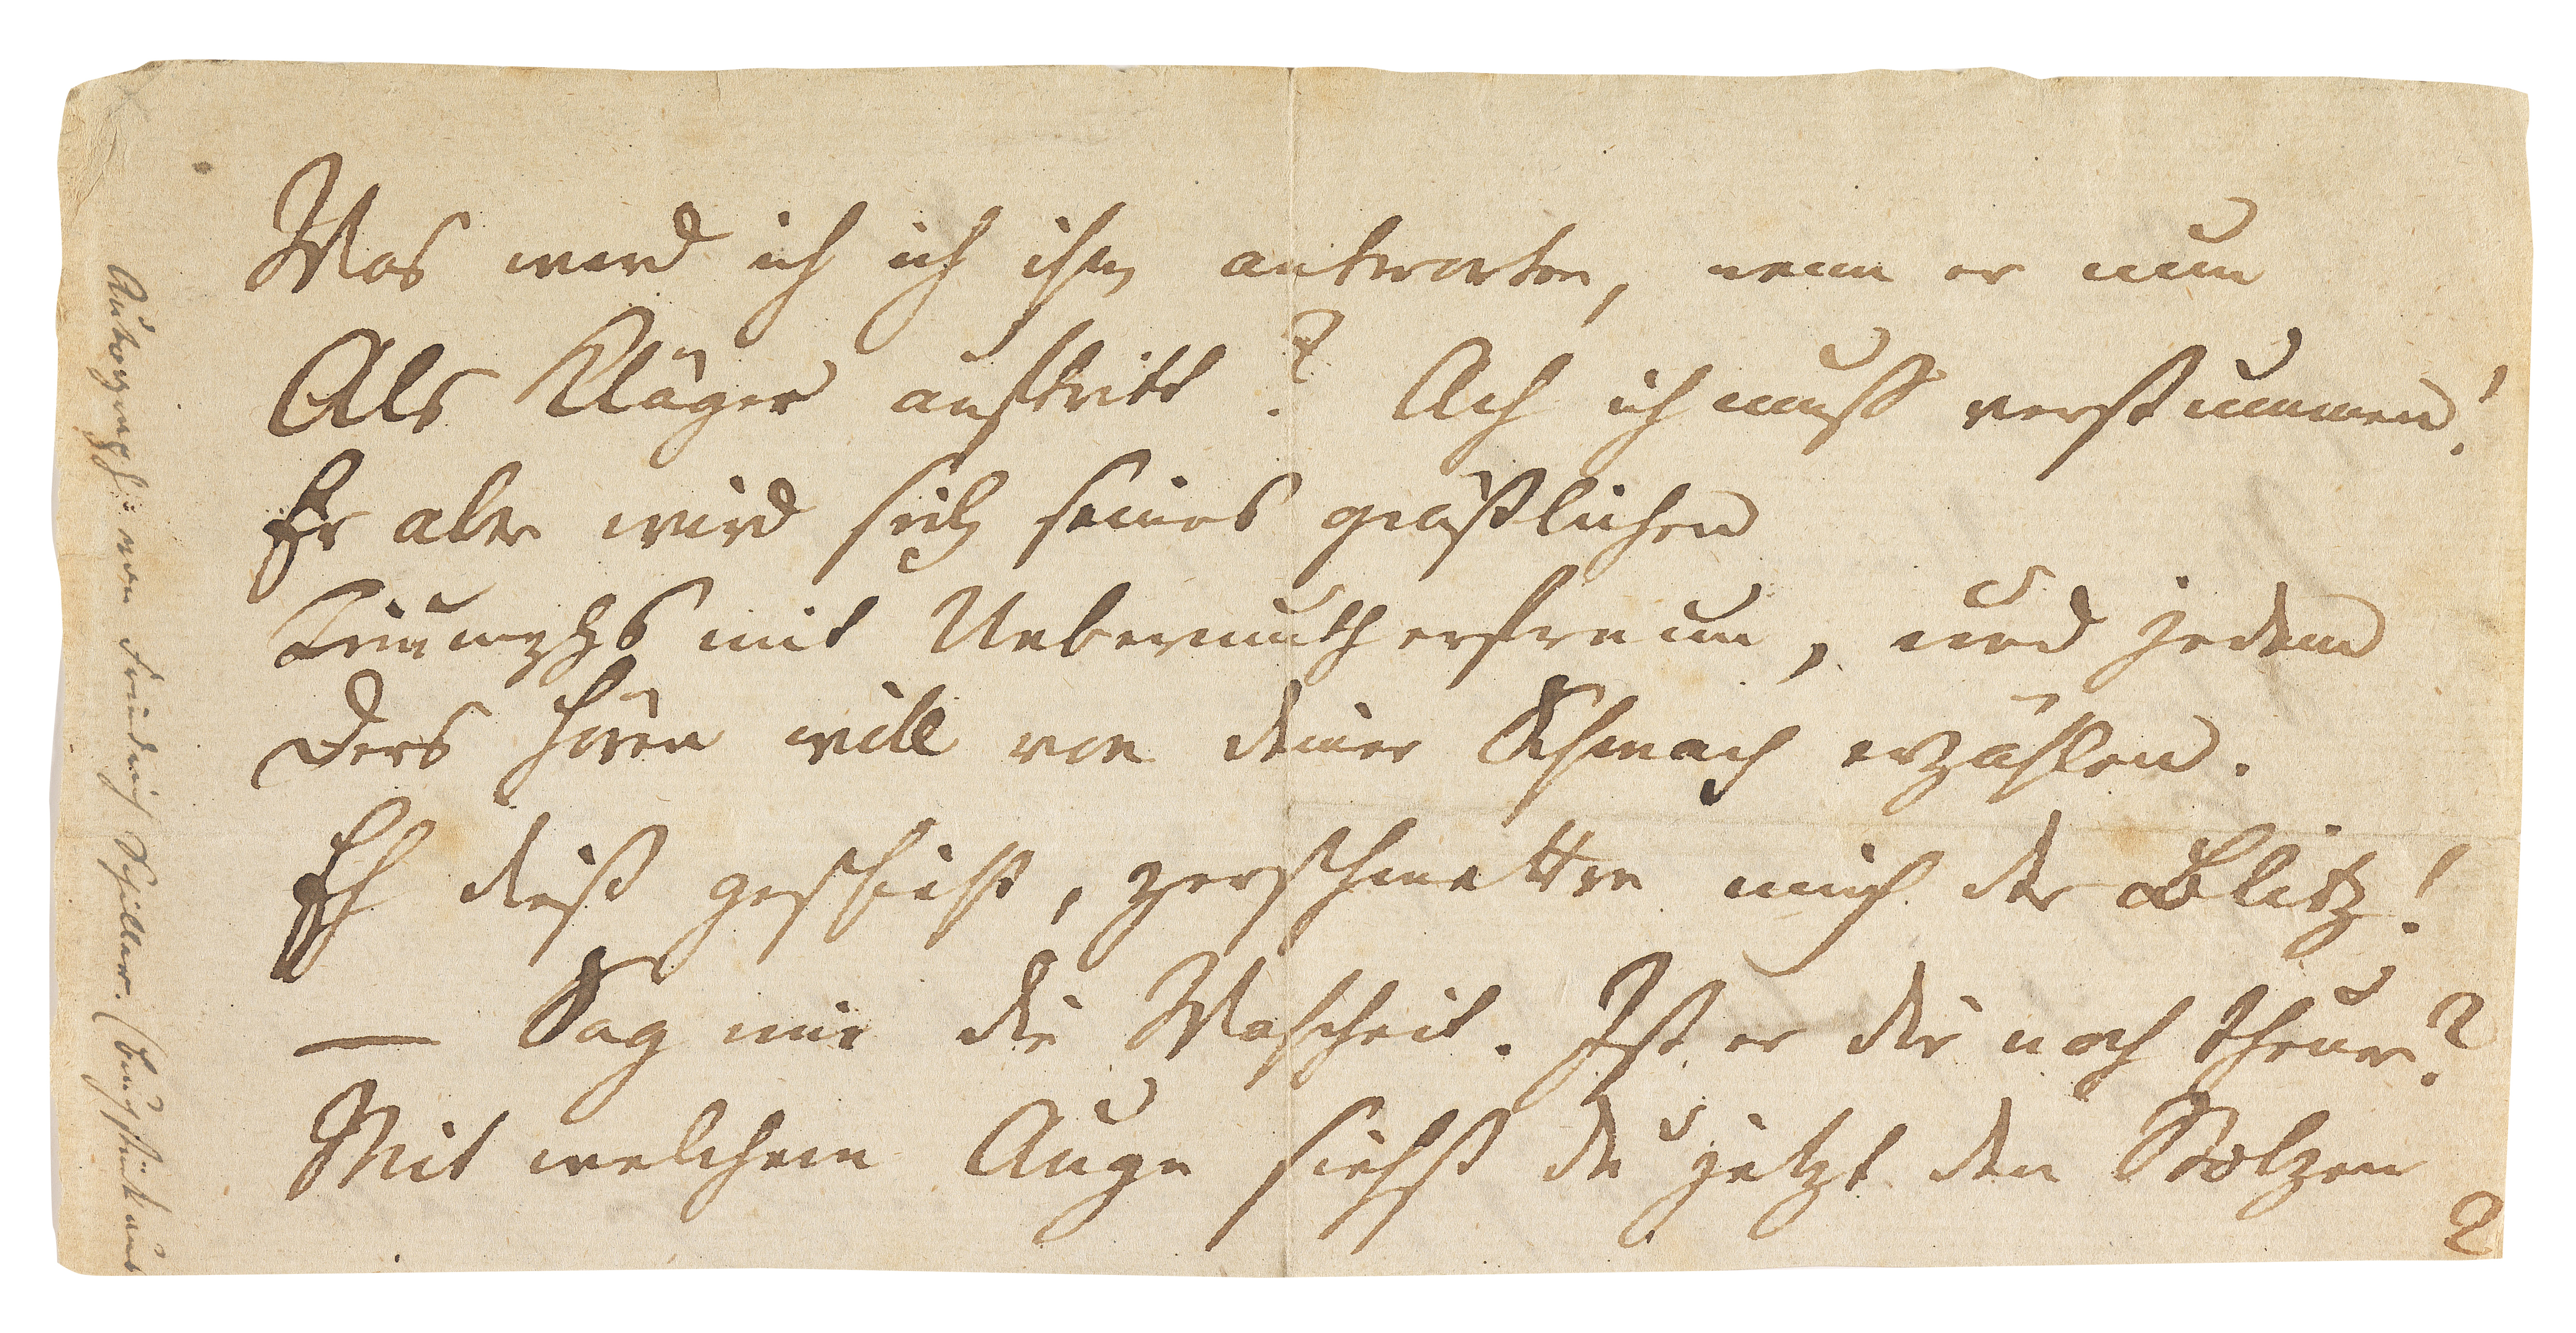 Was werd ich ich ihm antworten, wenn er nun
Als Kläger auftritt? Ach ich muß verstummen!
Er aber wird sich seines gräßlichen
Triumphs mit Uebermuth erfreun, und jedem
Ders hören will von deiner Schmach erzählen.
Eh dieß geschieht, zerschmettre mich der Blitz!
— Sag mir die Wahrheit. Ist er dir noch theuer?
Mit welchem Auge siehst du jetzt den Stolzen
?
Autographe von Friedrich Schiller. (Bruchstück aus